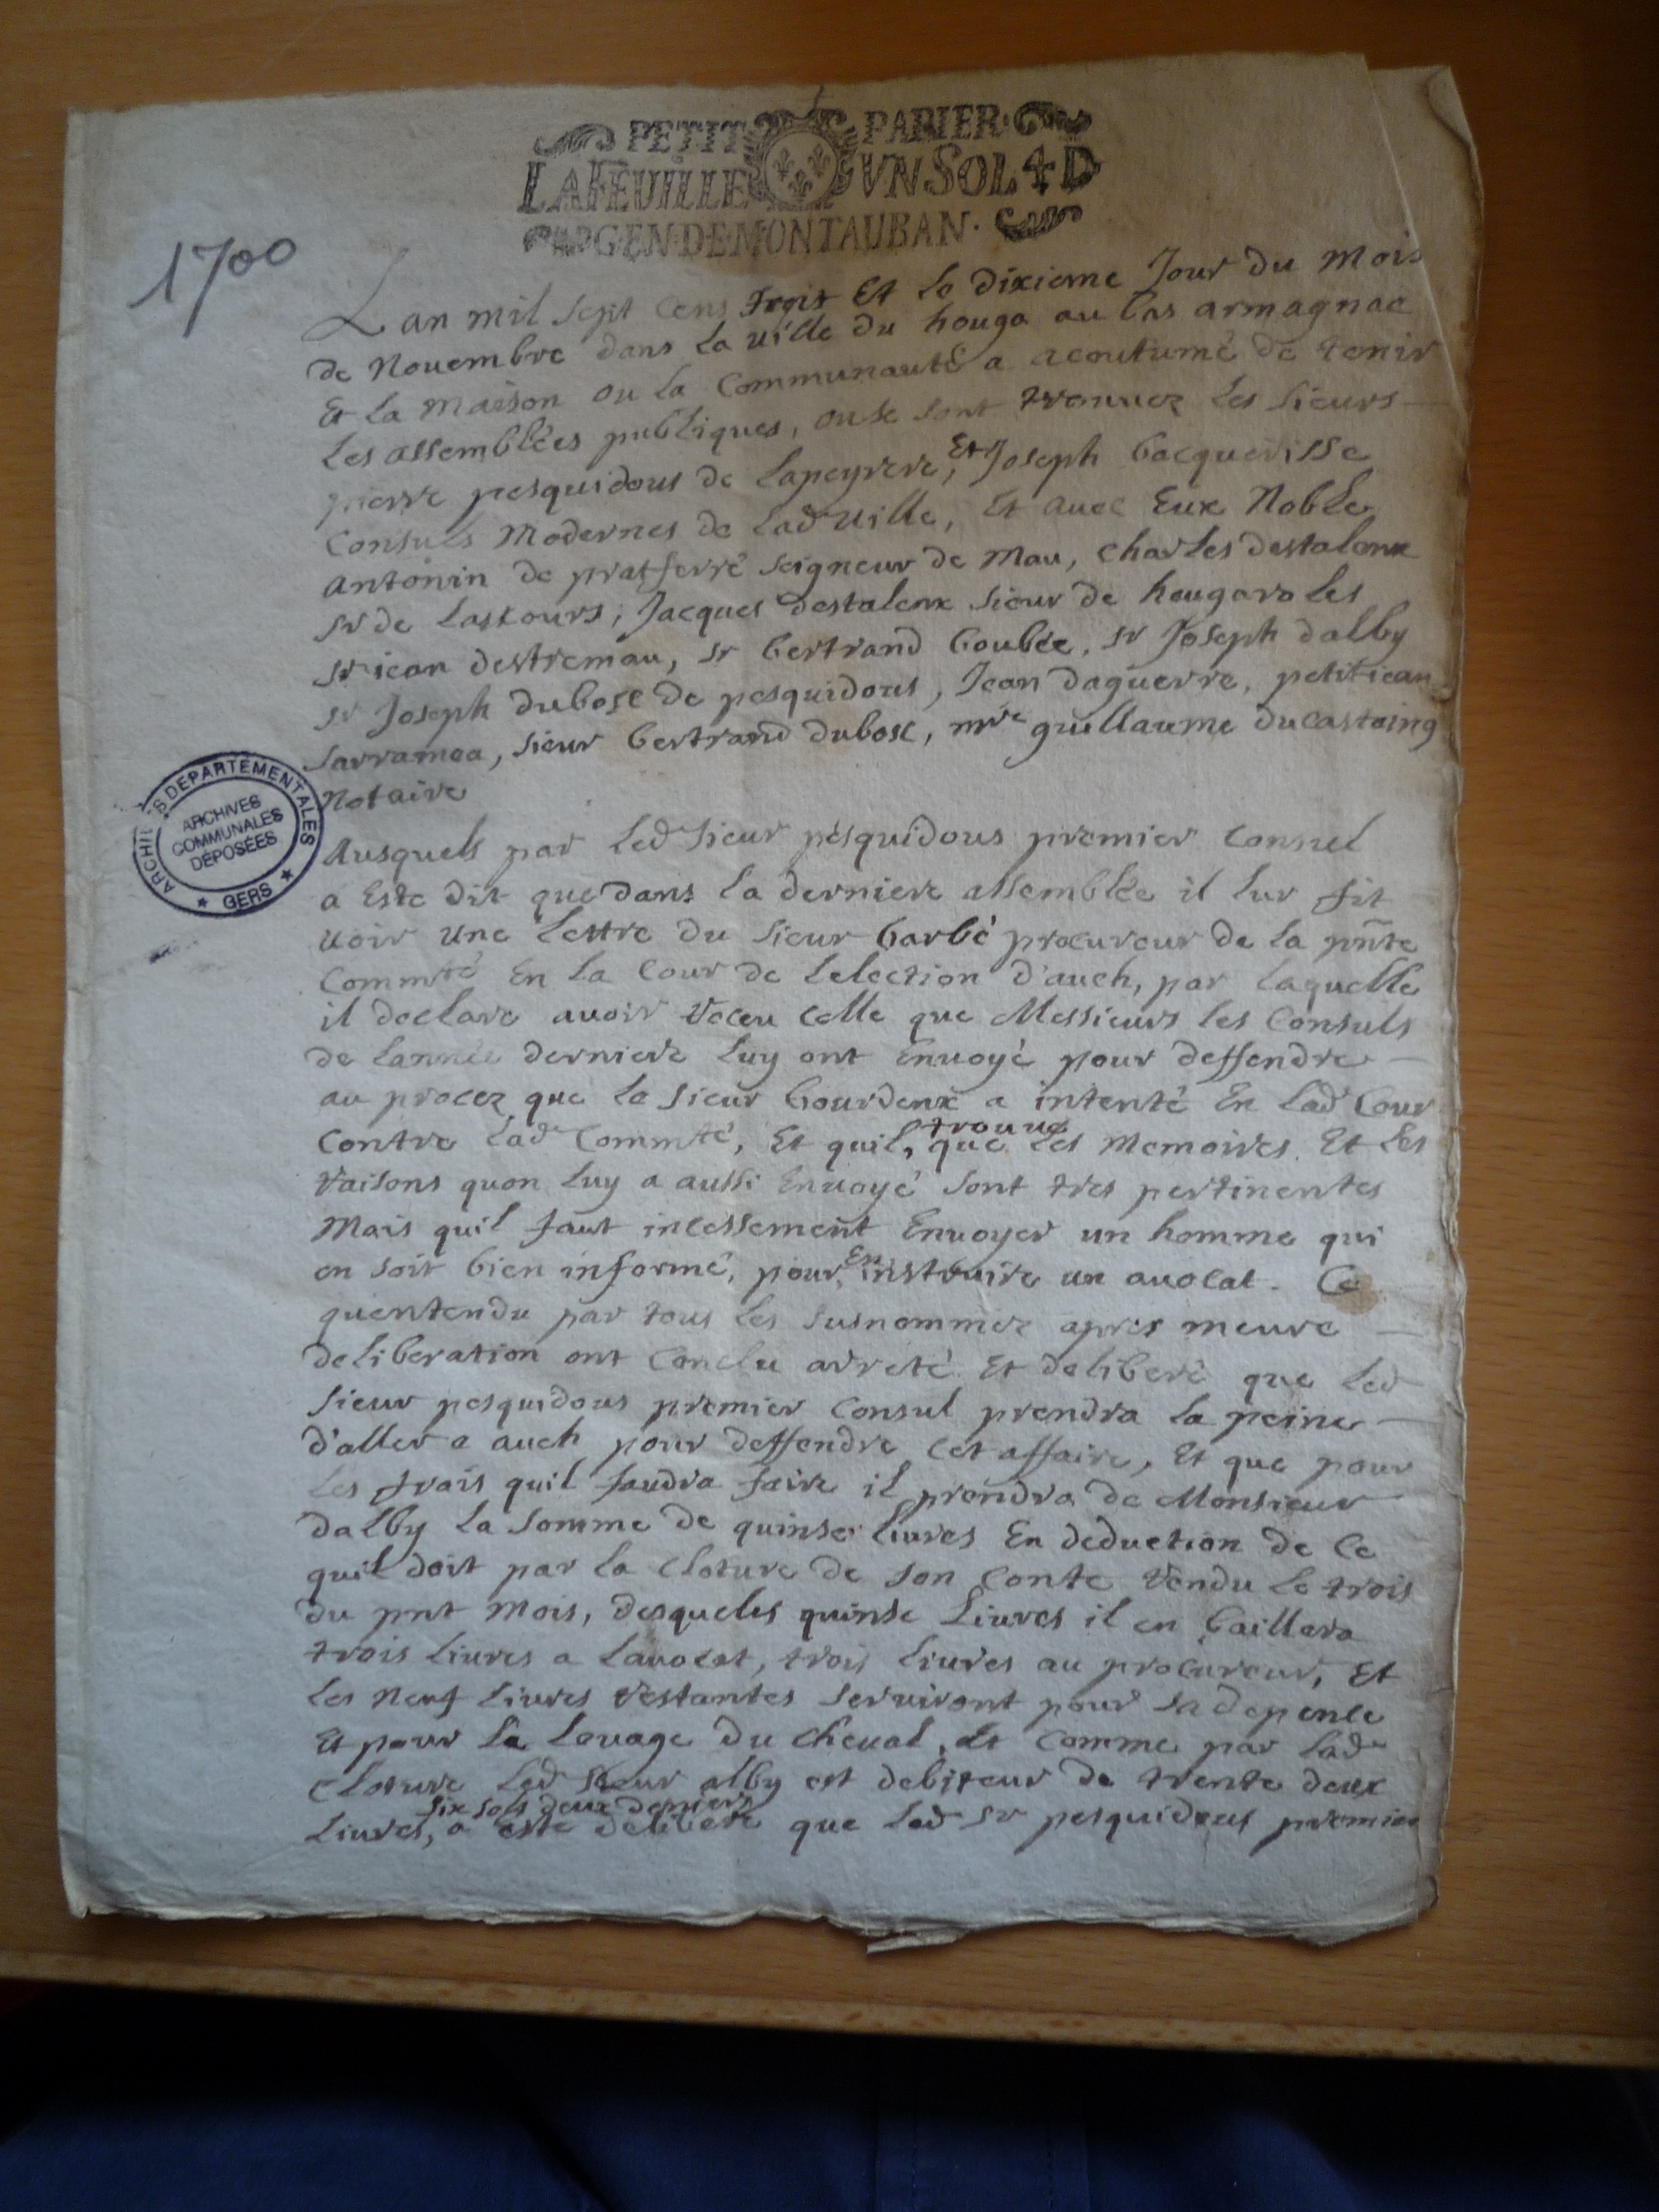 PETIT PAPIER
LAFEUILLE VN SOL 4 D
GEN·DE·MONTAUBAN·
1700
Lan mil sept cens trois Et le dixieme Jour du Mois
de Nouembre dans la uille du houga au bas armagnac
Et la maison ou la Communauté a acoutumé de tenir
Les assemblées publiques, ou se sont trouuez les sieurs
pierre pesquidous de Lapeyrere, Et Joseph bacquerisse
Consuls Modernes de lad uille, Et auec Eux Noble
antonin de pratferré seigneur de Mau, charles destalenx
sr de Lastours, Jacques destalenx sieur de hougaroles
sr jean destremau, sr bertrand boubée, sr Joseph dalby
sr Joseph dubosc de pesquidous, Jean daguerre, petit jean
sarramea, sieur bertrand dubosc, mre guillaume ducastaing
Notaire
ARCHIVES DEPARTEMENTALES
ARCHIVES
COMMUNALES
DÉPOSÉES
★ GERS ★
Ausquels par Led sieur pesquidous premier Consul
a Este dit que dans la derniere assemblée il lur fit
uoir une Lettre du sieur barbé procureur de la pñte
Commté En la Cour de Lelection d'auch, par laquelle
il declare auoir receu celle que Messieurs les Consuls
de lannée derniere luy ont Enuoyé pour deffendre
au procez que le sieur bourdenx a intenté En lad Cour
Contre lade Commté, Et quil, trouue que les Memoires Et les
raisons quon luy a aussi Enuoyé sont tres pertinentes
Mais quil faut incessement Enuoyer un homme qui
en soit bien informé, pour En instruire un auocat. Ce
quentendu par tous les susnommez apres meure
deliberation ont Conclu arreté Et deliberé que led
sieur pesquidous premier Consul prendra la peine
d'aller a auch pour deffendre cet affaire, Et que pour
les frais quil faudra faire il prendra de Monsieur
dalby la somme de quinse liures En deduction de ce
quil doit par la Cloture de son Conte rendu le trois
du pnt Mois, desqueles quinse Liures il en baillera
trois liures a lauocat, trois liures au procureur, Et
les Neuf liures restantes seruiront pour sa depence
Et pour le louage du cheual, Et Comme par lade
Cloture led sieur alby est debiteur de trente deux
Liures, six sols deux deniers a este deliberé que led sr pesquidous premier